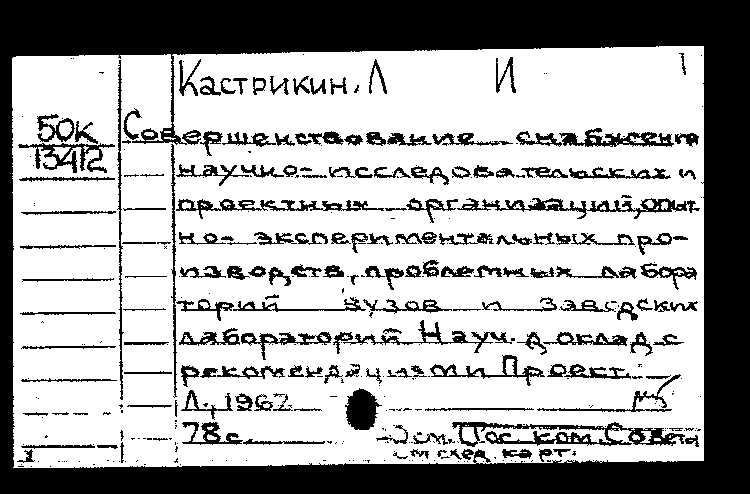 Кастрикин, Л И
1
50К
13412
Совершенствование снабжения
научно-исследовательских и
проектных организаций, опыт-
но-экспериментальных про-
изводств, проблемных лабора
торий вузов и заводских
лабораторий Науч. доклад с
рекомендациями Проект.
Л., 1962
78 с.
см. Гос. ком. Совета
см след. карт.
1